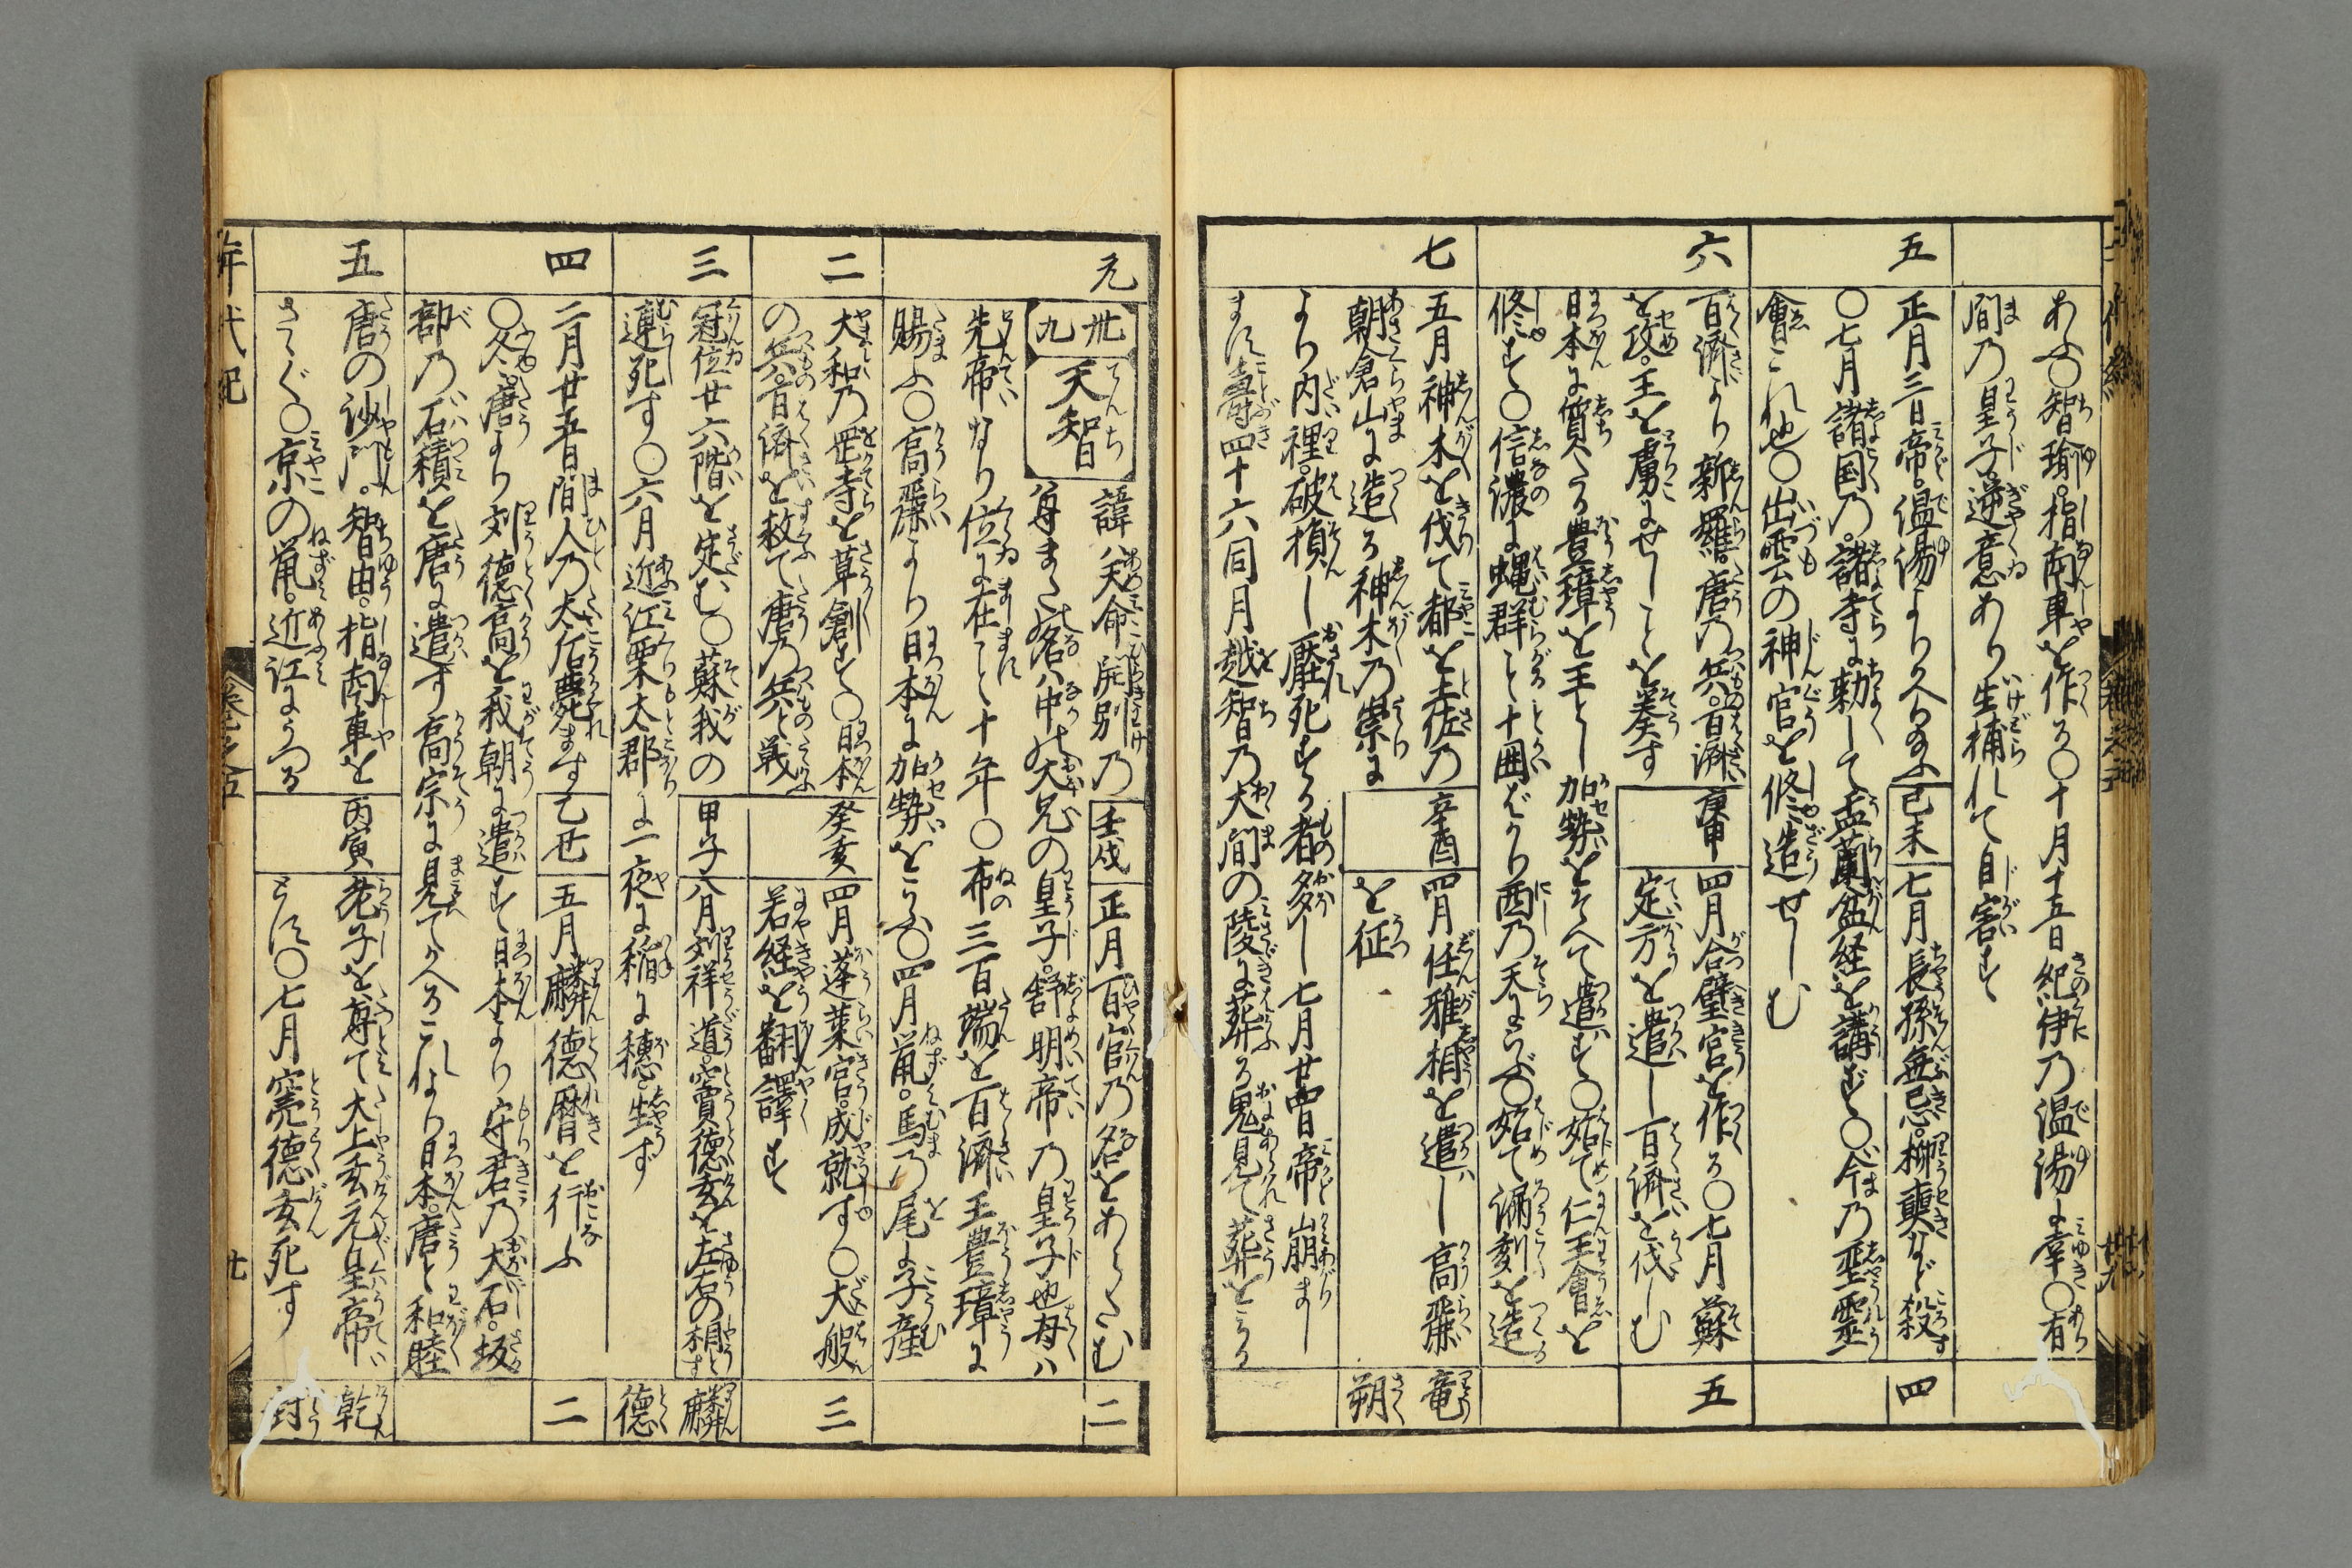 あふ〇智瑜。指南車を作る〇十月十五日紀伊乃温湯に幸〇有
間乃皇子逆意あり生捕れて自害す
五
正月三日帝。温湯より
己未
七月長孫無忌。柳奭など殺す
四
〇七月諸国乃。諸寺に勅して盂蘭盆経を講ず〇今乃聖霊
會これ也〇出雲の神官を修造せしむ
六
百済より新羅。唐乃兵。百済
庚申
四月合璧宮を作る〇七月蘇
五
を攻。王を虜にせしことを奏す
定方を遣し百済を伐しむ
日本に質たる豊璋を王とし加勢をそへて遣す〇始て仁王會を
修す〇信濃に蝿群こと十囲ばかり西乃天にらぶ〇始て漏刻を造る
七
五月神木を伐て都を土佐乃
辛酉
四月任雅相を遣し高麗
竜
朝倉山に造る神木乃祟に
を征
朔
より内裡。破損し壓死する者多し七月廿四日帝崩まし
ます壽四十六同月越智乃大間の陵に葬る鬼見て葬とみる
元
卅九
天智
諱ハ天命開別乃
壬戌
正月百官乃名をあらたむ
二
尊また名ハ中大兄の皇子。舒明帝乃皇子也母ハ
先帝なり位に在こと十年〇布三百端を百済王豊璋に
賜ふ〇高麗より日本に加勢をこふ〇四月鼠。馬乃尾に子産
二
大和乃岡寺を草創す〇日本
癸亥
四月蓬莱宮。成就す〇大般
三
の兵。百済を救て唐乃兵と戦
若経を翻譯す
三
冠位廿六階を定む〇蘇我の
甲子
八月刘祥道。竇徳玄を左右の相とす
麟
連死す〇六月近江栗太郡に一夜に稲に穂生ず
徳
四
二月廿五日間人乃大后薨ます
乙丑
五月麟徳暦を行ふ
二
〇冬。唐より刘徳高を我朝に遣す日本より守君乃大石。坂
部乃石積を唐に遣す高宗に見てかへるこれより日本。唐と和睦
五
唐の沙門。智由。指南車を
丙寅
老子を尊て大上玄元皇帝
乾
さゝぐ〇京の鼠。近江にうつる
とす〇七月竇徳玄死す
封
年代紀
巻之五
廿